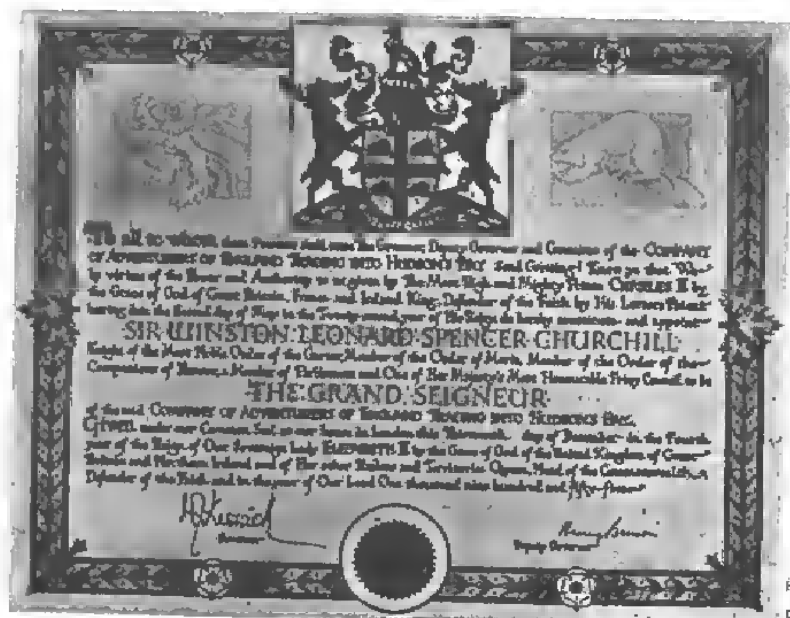 To all to whom these Presents shall come the Governor, Deputy Governor and Committee of the COMPANY
OF ADVENTURERS OF ENGLAND TRADING INTO HUDSON'S BAY Send Greeting! Know ye that We
by virtue of the Power and Authority to us given by The Most High and Mighty Prince CHARLES II by
the Grace of God of Great Britain, France and Ireland King, Defender of the Faith by His Letters Patent
bearing date the Second day of May in the Twenty-second year of His Reign do hereby constitute and appoint
SIR WINSTON LEONARD SPENCER CHURCHILL
Knight of the Most Noble Order of the Garter, Member of the Order of Merit, Member of the Order of the
Companions of Honour, a Member of Parliament and One of Her Majesty's Most Honourable Privy Council to be
THE GRAND SEIGNEUR
of the said COMPANY OF ADVENTURERS OF ENGLAND TRADING INTO HUDSON'S BAY.
GIVEN under our Common Seal at our house in London this day of December in the Fourth
year of the Reign of Our Sovereign Lady ELIZABETH II by the Grace of God of the United Kingdom of Great
Britain and Northern Ireland and of Her other Realms and Territories Queen, Head of the Commonwealth,
Defender of the Faith and in the year of Our Lord One thousand nine hundred and fifty-five
Governor
Deputy Governor